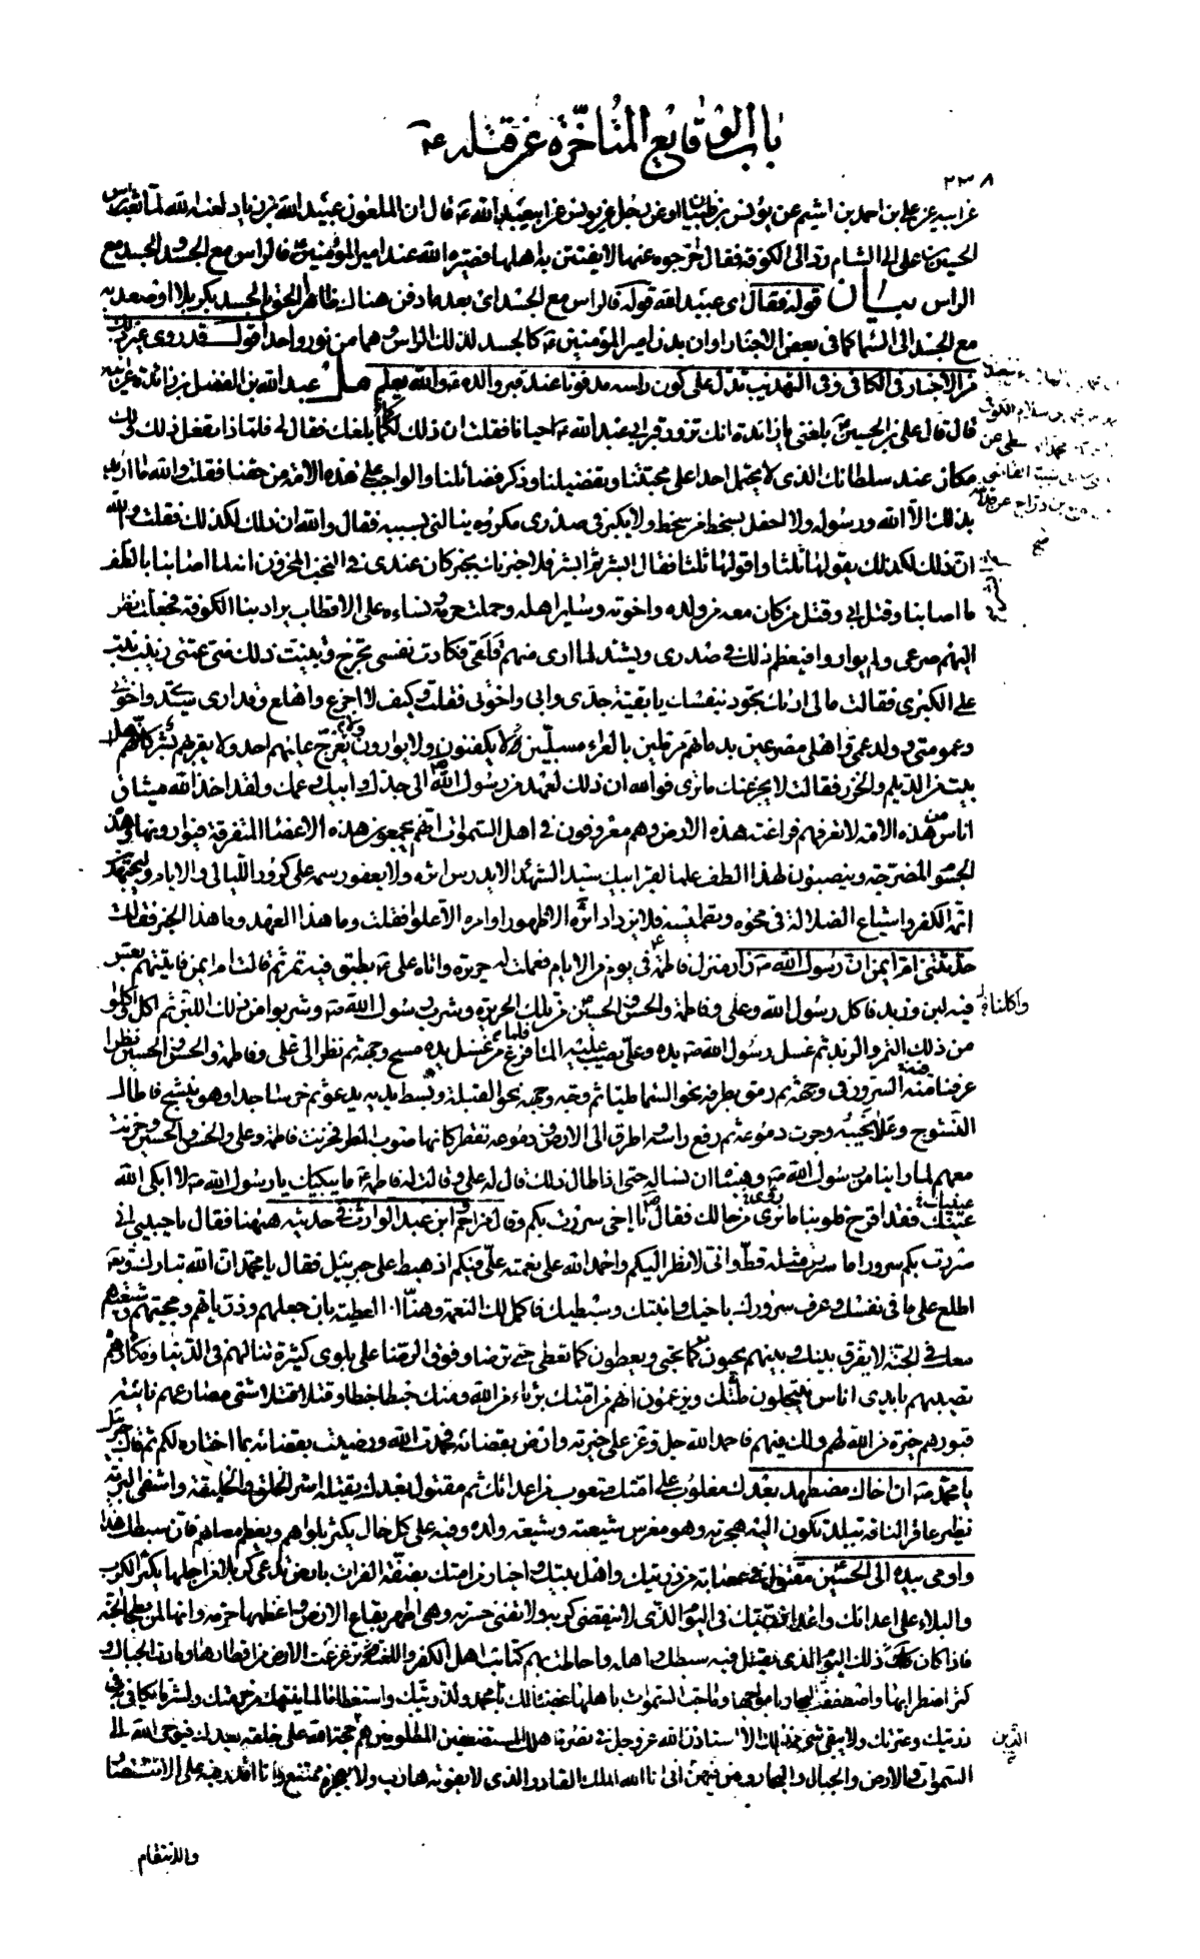 باب الوقايع المتاخرة عن قتله ع
٢٣٨
عن ابيه عن علي بن احمد بن اشيم عن يونس بن ظبيان او عن رجل عن يونس عن ابي عبد الله ع قال ان الملعون عبيد الله بن زياد لعنه الله لما بعث براس
الحسين بن علي الى الشام رد الى الكوفة فقال اخرجوه عنها لا يفتتن به اهلها فصيره الله عند امير المؤمنين ع فالراس مع الجسد والجسد مع
الراس بيان قوله فقال اي عبيد الله قوله فالراس مع الجسد اي بعد ما دفن هناك ظاهرا الحق بالجسد بكربلا او صعد به
مع الجسد الى السما كما في بعض الاخبار او ان بدن امير المؤمنين ع كالجسد لذلك الراس وهما من نور واحد اقول قد روى غير ذلك
من الاخبار في الكافي وفي التهذيب تدل على كون راسه مدفونا عند قبر والده ع والله يعلم مل عبد الله بن الفضل بن زائدة عن ابيه
قال قال علي بن الحسين ع بلغني يا زائدة انك تزور قبر ابي عبد الله ع احيانا فقلت ان ذلك لكما بلغك فقال لي فلماذا تفعل ذلك ولك
مكان عند سلطانك الذي لا يحتمل احدا على محبتنا وتفضيلنا وذكر فضائلنا والواجب على هذه الامة من حقنا فقلت والله ما اريد
بذلك الا الله ورسوله ولا احفل بسخط من سخط ولا يكبر في صدري مكروه ينالني بسببه فقال والله ان ذلك لكذلك فقلت والله
ان ذلك لكذلك يقولها ثلثا واقولها ثلثا فقال ابشر ثم ابشر ثم ابشر فلاخبرنك بخبر كان عندي في النخب المخزون انه لما اصابنا بالطف
ما اصابنا وقتل ابي وقتل من كان معه من ولده واخوته وساير اهله وحملت حرمه ونساءه على الاقتاب يراد بنا الكوفة فجعلت انظر
اليهم صرعى ولم يواروا فيعظم ذلك في صدري ويشتد لما ارى منهم قلقي فكادت نفسي تخرج وتبينت ذلك مني عمتي زينب بنت
علي الكبرى فقالت مالي اراك تجود بنفسك يا بقية جدي وابي واخوتي فقلت وكيف لا اجزع واهلع وقد ارى سيدي واخوتي
وعمومتي وولد عمي واهلي مصرعين بدمائهم مرملين بالعراء مسلبين لا يكفنون ولا يوارون ولا يعرج عليهم احد ولا يقربهم بشر كانهم اهل
بيت من الديلم والخزر فقالت لا يجزعنك ما ترى فوالله ان ذلك لعهد من رسول الله ص الى جدك وابيك وعمك ولقد اخذ الله ميثاق
اناس من هذه الامة لا تعرفهم فراعنة هذه الارض وهم معروفون في اهل السموات انهم يجمعون هذه الاعضا المتفرقة فيوارونها وهذه
الجسوم المضرجة وينصبون لهذا الطف علما لقبر ابيك سيد الشهدا لا يدرس اثره ولا يعفو رسمه على كرور الليالي والايام وليجتهدن
ائمة الكفر واشياع الضلالة في محوه وتطميسه فلا يزداد اثره الا ظهورا وامره الا علوا فقلت وما هذا العهد وما هذا الخبر فقالت
حدثتني ام ايمن ان رسول الله ص زار منزل فاطمة ع في يوم من الايام فعملت له حريرة واتاه علي ع بطبق فيه تمر ثم قالت ام ايمن فاتيتهم بعس
فيه لبن وزبد فاكل رسول الله وعلي وفاطمة والحسن والحسين ع من تلك الحريرة وشرب رسول الله ص وشربوا من ذلك اللبن ثم اكل واكلوا
واكلنا
من ذلك التمر والزبد ثم غسل رسول الله ص يده وعلي يصب عليه الماء فلما فرغ من غسل يده مسح وجهه ثم نظر الى علي وفاطمة والحسن والحسين نظرا
عرفنا منه السرور في وجهه ثم رمق بطرفه نحو السما مليا ثم وجه وجهه نحو القبلة وبسط يديه يدعو ثم خر ساجدا وهو ينشج فاطال
النشوج وعلا نحيبه وجرت دموعه ثم رفع راسه واطرق الى الارض ودموعه تقطر كانها صوب المطر فحزنت فاطمة وعلي والحسن والحسين وحزنت
معهم لما راينا من رسول الله ص وهبناه ان نساله حتى اذا طال ذلك قال له علي وقالت له فاطمة ع ما يبكيك يا رسول الله ص لا ابكى الله
عينيك فقد اقرح قلوبنا ما نرى من حالك فقال يا اخي سررت بكم وقال مزاحم ابن عبد الوارث في حديثه ههنا فقال يا حبيبي اني
سررت بكم سرورا ما سررت مثله قط واني لانظر اليكم واحمد الله على نعمته علي فيكم اذ هبط علي جبرئيل فقال يا محمد ان الله تبارك وتعالى
اطلع على ما في نفسك وعرف سرورك باخيك وابنتك وسبطيك فاكمل لك النعمة وهناك العطية بان جعلهم وذرياتهم ومحبيهم وشيعتهم
معك في الجنة لا يفرق بينك وبينهم يحبون كما تحبى ويعطون كما تعطى حتى ترضا وفوق الرضا على بلوى كثيرة تنالهم في الدنيا ومكاره
تصيبهم بايدي اناس ينتحلون ملتك ويزعمون انهم من امتك برءاء من الله ومنك خبطا خبطا وقتلا قتلا شتى مصارعهم نائية
قبورهم خيرة من الله لهم ولك فيهم فاحمد الله جل وعز على خيرته وارض بقضائه فحمدت الله ورضيت بقضائه بما اختاره لكم ثم قال جبرئيل
يا محمد ص ان اخاك مضطهد بعدك مغلوب على امتك متعوب من اعدائك ثم مقتول بعدك يقتله اشر الخلق والخليقة واشقى البرية
نظير عاقر الناقة ببلد تكون اليه هجرته وهو مغرس شيعته وشيعة ولده وفيه على كل حال يكثر بلواهم ويعظم مصابهم فان سبطك هذا
واومى بيده الى الحسين ع مقتول في عصابة من ذريتك واهل بيتك واخيار من امتك بضفة الفرات بارض تدعى كربلا من اجلها يكثر الكرب
والبلاء على اعدائك واعداء ذريتك في اليوم الذي لا ينقضي كربه ولا تفنى حسرته وهي اطهر بقاع الارض واعظمها حرمة وانها لمن بطحا الجنة
فاذا كان ذلك اليوم الذي يقتل فيه سبطك واهله واحاطت بهم كتائب اهل الكفر واللعنة تزعزعت الارض من اقطارها ومادت الجبال و
كثر اضطرابها واصطفقت البحار بامواجها وماجت السموات باهلها غضبا لك يا محمد ولذريتك واستعظاما لما ينتهك من حرمتك ولشر ما تكافى به في
ذريتك وعترتك ولا يبقى شيء من ذلك الا استاذن الله عز وجل في نصرة اهلك المستضعفين المظلومين الذين هم حجة الله على خلقه بعدك فيوحى الله الى
السموات والارض والجبال والبحار ومن فيهن اني انا الله الملك القادر الذي لا يفوته هارب ولا يعجزه ممتنع وانا اقدر فيه على الانتصار
والانتقام